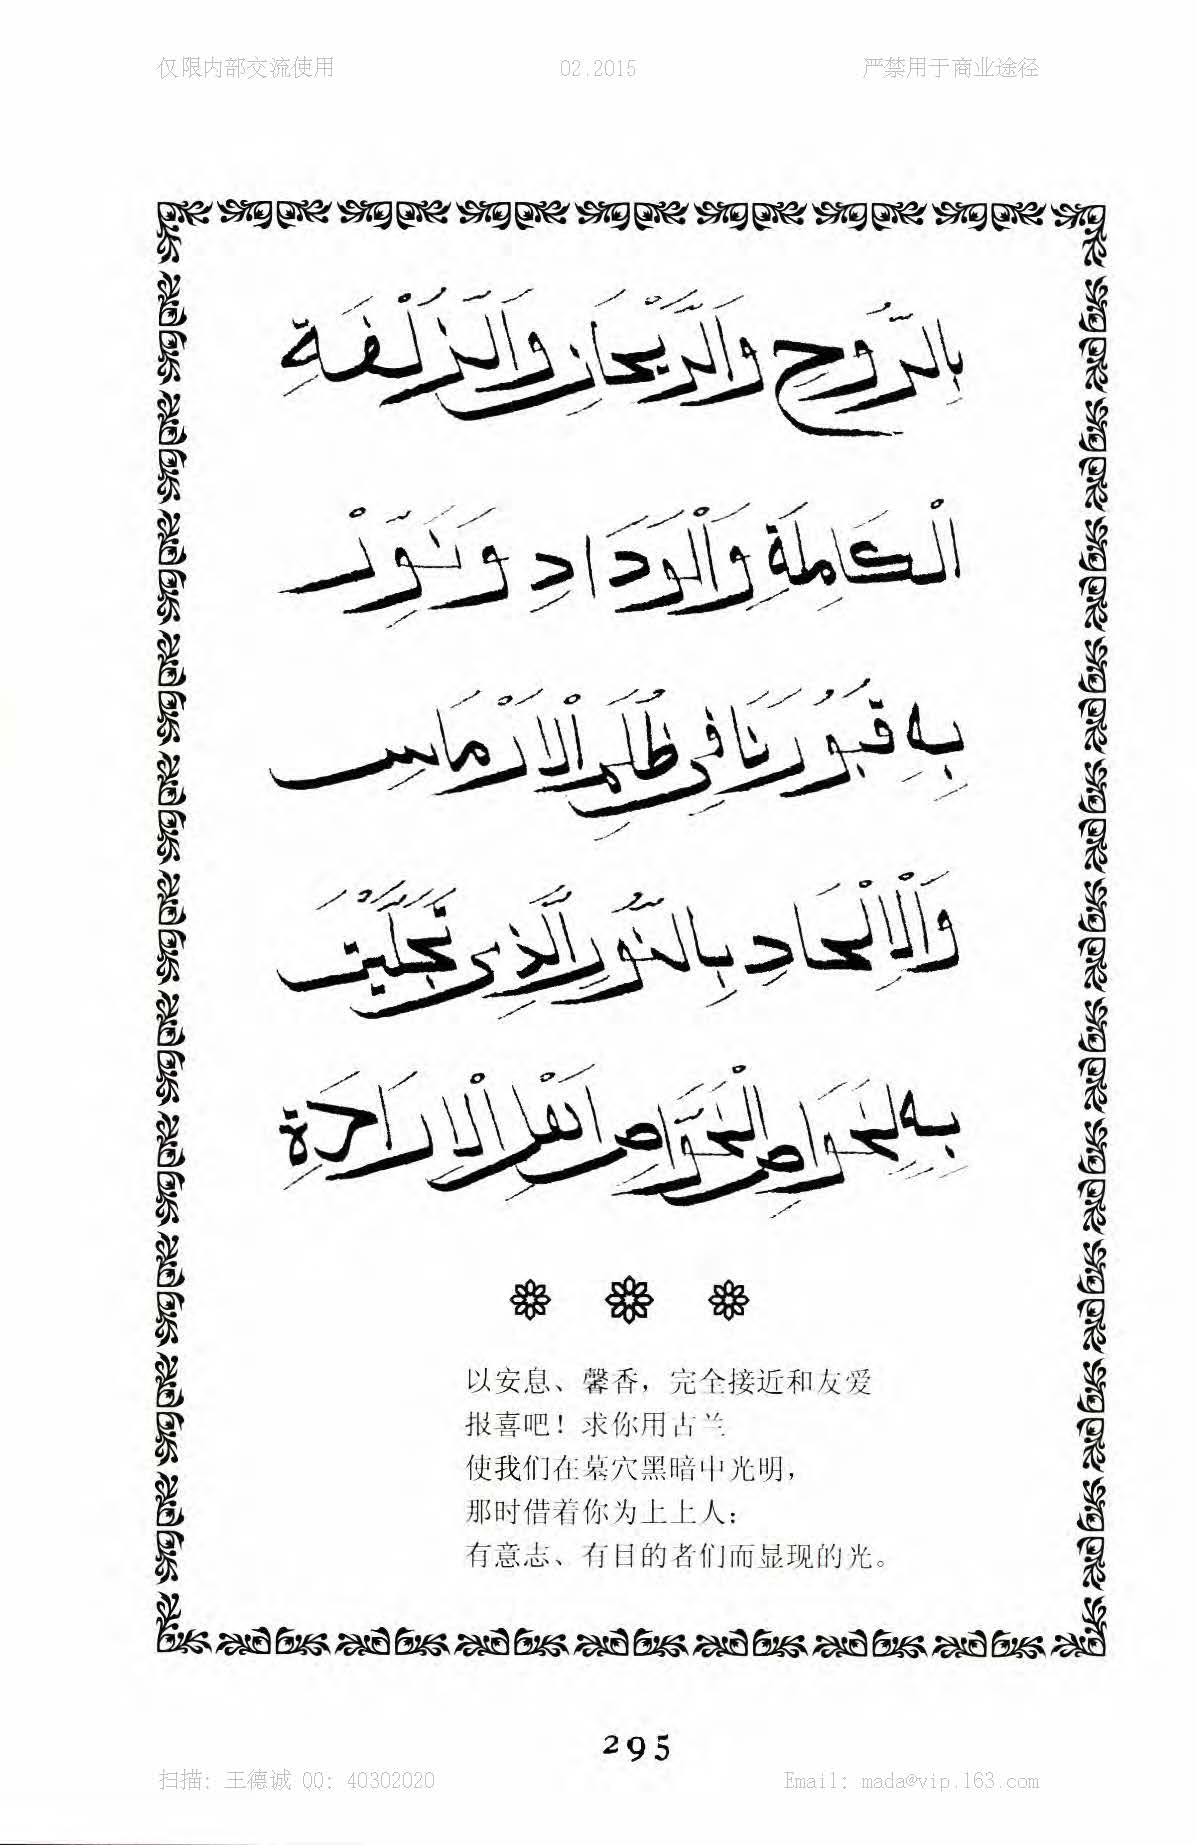 仅限内部交流使用 02.2015 严禁用于商业途径
بِالرَّوْحِ وَالرَّيْحَانِ وَالزُّلْفَةِ
الْكَامِلَةِ وَالْوَدَادِ وَنَوِّرْ
بِهِ قُبُورَنَا فِي ظُلَمِ الْاَرْمَاسِ
وَالْاِلْحَادِ بِالنُّورِ الَّذِي تَجَلَّيْتَ
بِهِ لِخَوَاصِ الْخَوَّاصِ اَهْلِ الْاِرَادَةِ
以安息、馨香，完全接近和友爱
报喜吧！求你用古兰
使我们在墓穴黑暗中光明，
那时借着你为上上人；
有意志、有目的者们而显现的光。
295
扫描: 王德诚 QQ: 40302020 Email: mada@vip.163.com